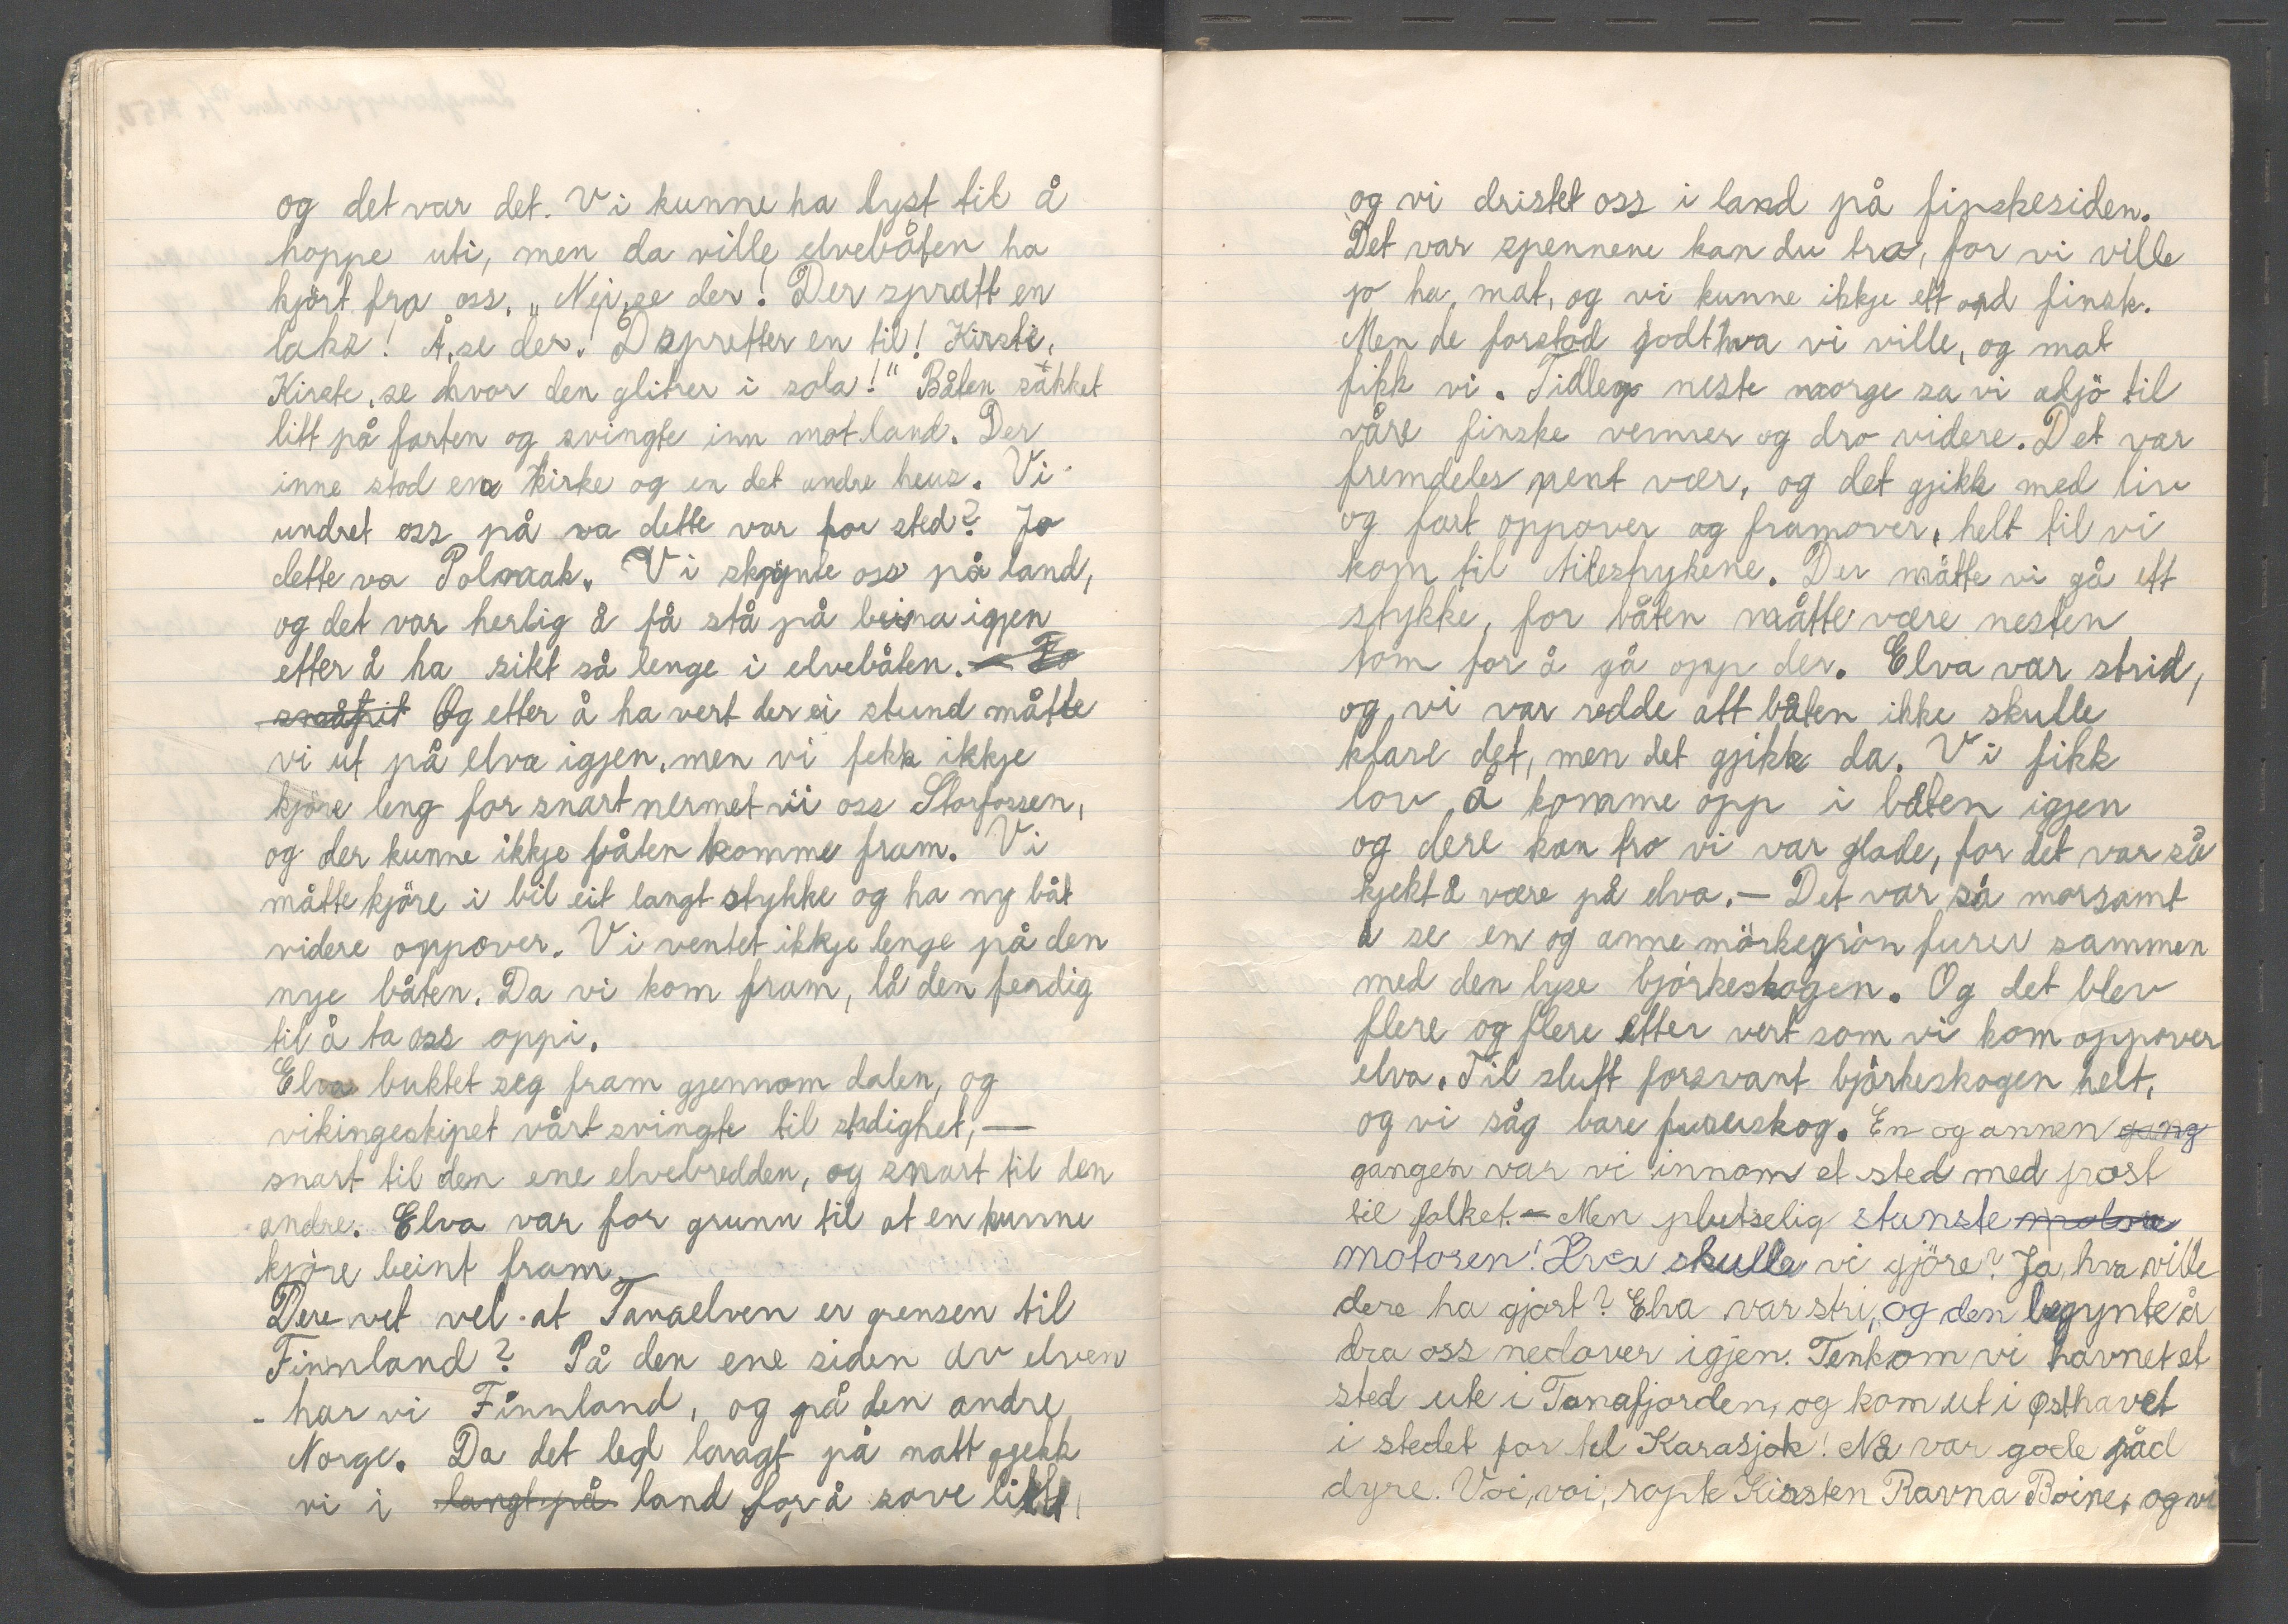 og det var det. Vi kunne ha lyst til å
hoppe uti, men da ville elvebåten ha
kjört fra oss. „Nei, se der! Der spratt en
laks! Å, se der! D spretter en til! Kirste,
Kirste, se hvor den glitrer i sola!" Båten sakket
litt på farten og svingte inn mot land. Der
inne stod en kirke og en det andre heus. Vi
undret oss på va dette var for sted? Jo
dette va Polmak. Vi skjynte oss på land,
og det var herlig å få stå på beina igjen
etter å ha sikt så lenge i elvebåten.
Og etter å ha vert der ei stund måtte
vi ut på elva igjen, men vi fekk ikkje
kjöre leng for snart nermet vii oss Storfossen,
og der kunne ikkje båten komme fram. Vi
måtte kjöre i bil eit langt stykke og ha ny båt
videre oppover. Vi ventet ikkje lenge på den
nye båten. Da vi kom fram, lå den ferdig
til å ta oss oppi.
Elva buktet seg fram gjennom dalen, og
vikingeskipet vårt svingte til stadighet, —
snart til den ene elvebredden, og snart til den
andre. Elva var for grunn til at en kunne
kjöre beint fram.
Dere vet vel at Tanaelven er grensen til
Finnland? På den ene siden av elven
har vi Finnland, og på den andre
Norge. Da det led langt på natt gjekk
vi i langt på land for å sove litt,
og vi dristet oss i land på finskesiden.
Det var spennene kan du tro, for vi ville
jo ha mat, og vi kunne ikkje ett ord finsk.
Men de forstod godt hva vi ville, og mat
fikk vi. Tidleg neste morge sa vi adjö til
våre finske venner og dro videre. Det var
fremdeles pent vær, og det gjikk med liv
og fart oppover og framover, helt til vi
kom til Ailestrykene. Der måtte vi gå ett
stykke, for båten måtte være nesten
tom for å gå opp der. Elva var strid,
og vi var redde att båten ikke skulle
klare det, men det gjikk da. Vi fikk
lov å komme opp i båten igjen
og dere kan tro vi var glade, for det var så
kjekt å være på elva. — Det var så morsamt
å se en og anne mörkegrön furu sammen
med den lyse björkeskogen. Og det blev
flere og flere etter vert som vi kom oppover
elva. Til slutt forsvant björkeskogen helt,
og vi såg bare furuskog. En og annen gang
gangen var vi innom et sted med post
til folket. — Men plutselig stanste motore
motoren! Hva skulle vi gjöre? Ja, hva ville
dere ha gjort? Elva var stri, og den begynte å
dra oss nedover igjen. Tenk om vi havnet et
sted ute i Tanafjorden, og kom ut i Østhavet
i stedet for tel Karasjok! Nå var gode råd
dyre. Voi, voi, ropte Kirsten Ravna Boine, og vi